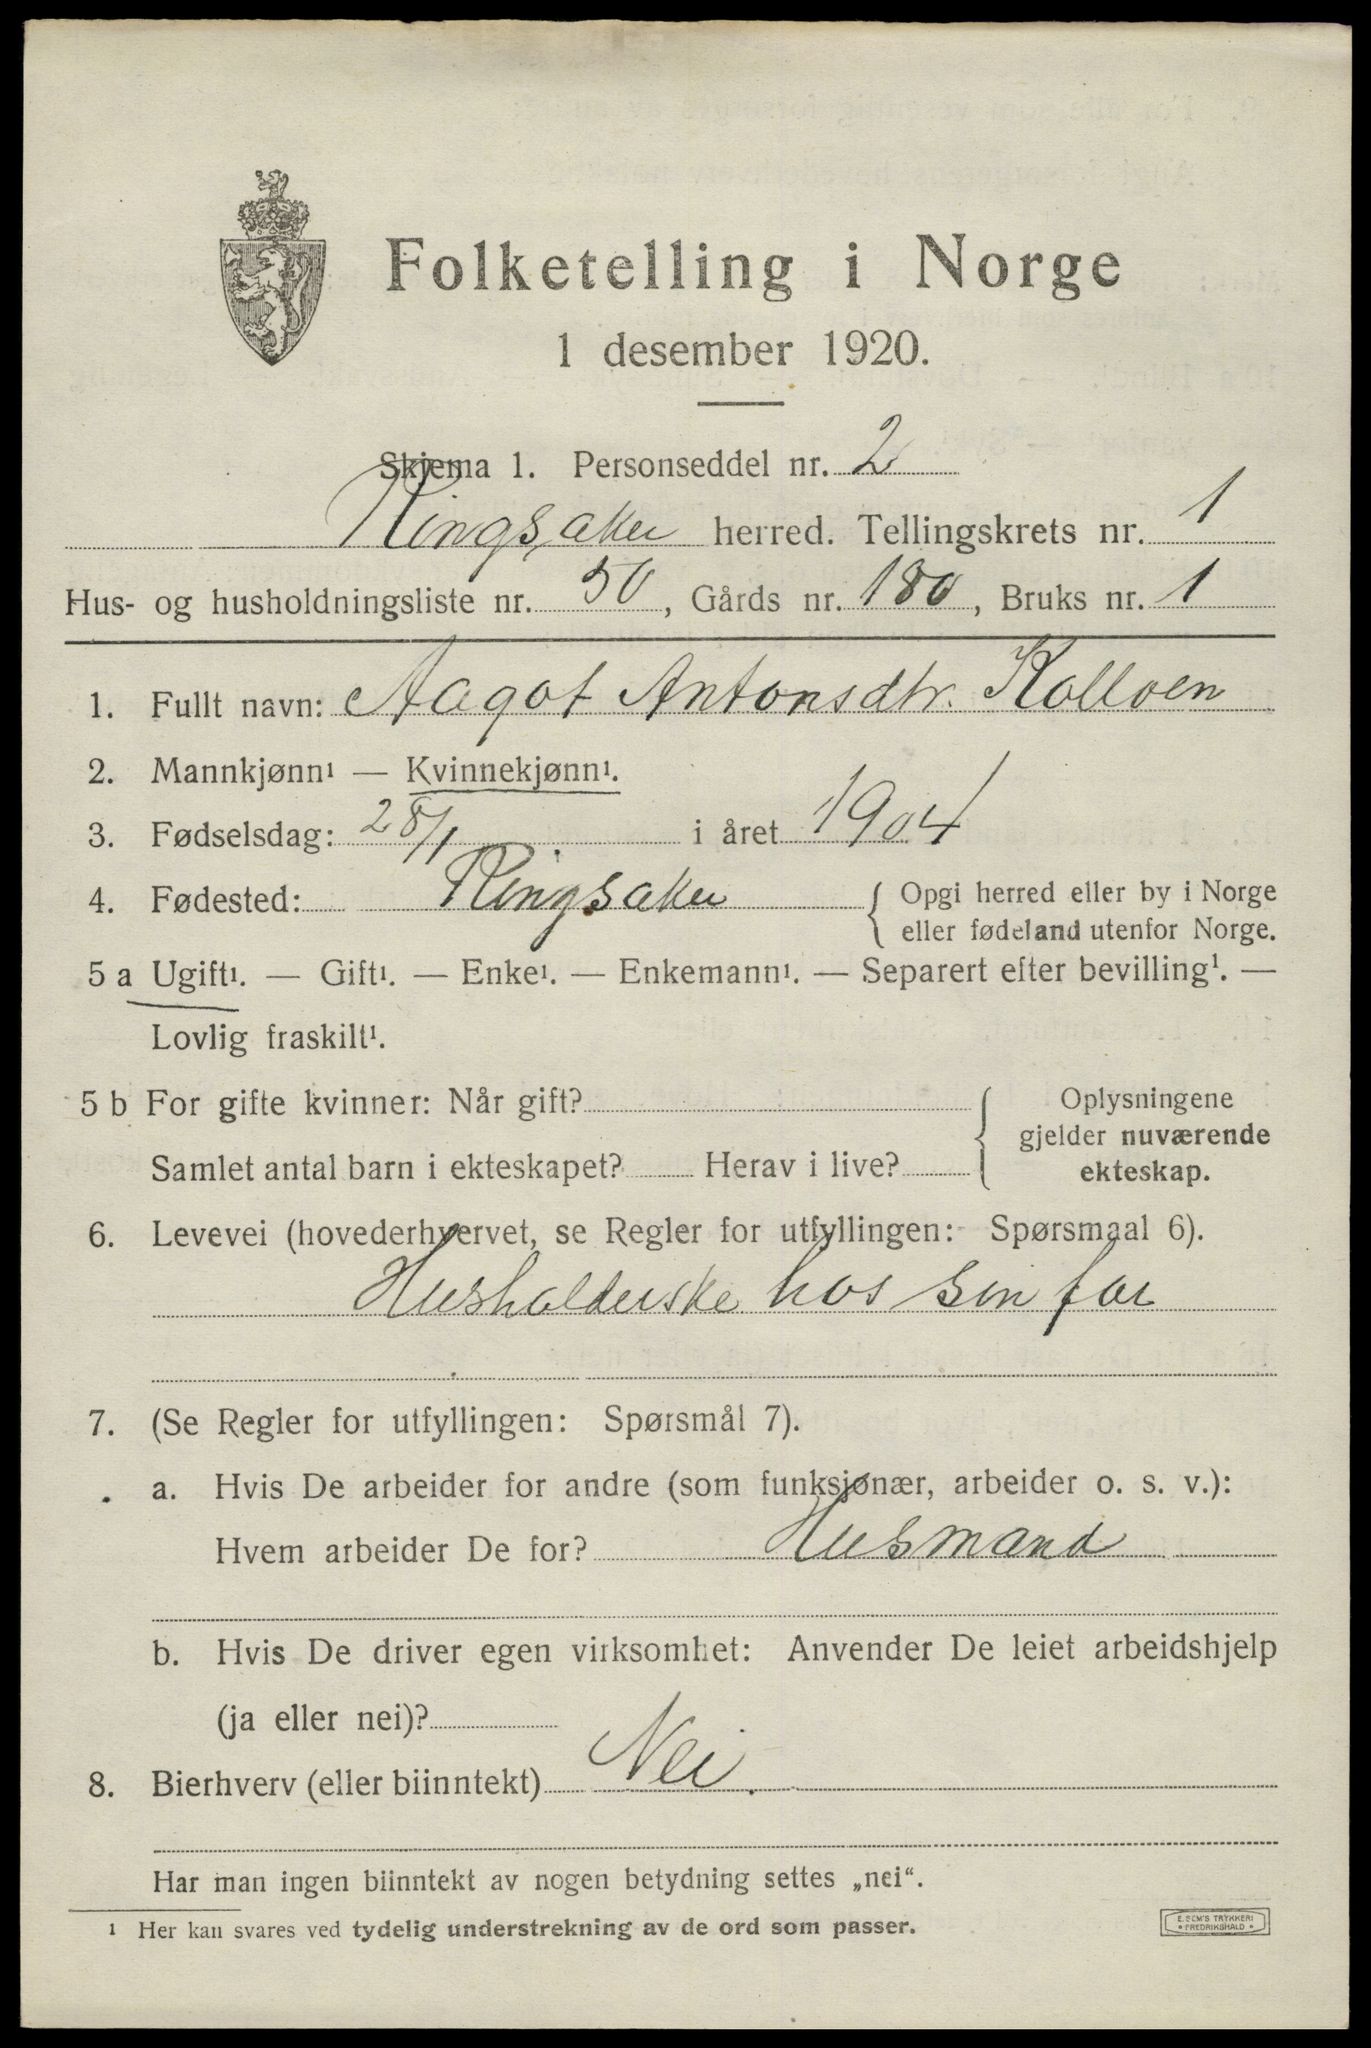 Folketelling i Norge
1 desember 1920.
Skjema 1. Personseddel nr. 2
Ringsaker herred. Tellingskrets nr. 1
Hus- og husholdningsliste nr. 50, Gårds nr. 180, Bruks nr. 1
1. Fullt navn: Aagot Antonsdtr. Kolloen
2. Mannkjønn¹ — Kvinnekjønn¹.
3. Fødselsdag: 28/1 i året 1904
4. Fødested: Ringsaker { Opgi herred eller by i Norge
eller fødeland utenfor Norge.
5 a Ugift¹. — Gift¹. — Enke¹. — Enkemann¹. — Separert efter bevilling¹. —
Lovlig fraskilt¹.
5 b For gifte kvinner: Når gift? { Oplysningene
gjelder nuværende
Samlet antal barn i ekteskapet? Herav i live? ekteskap.
6. Levevei (hovederhvervet, se Regler for utfyllingen: Spørsmaal 6).
Husholderske hos sin far
7. (Se Regler for utfyllingen: Spørsmål 7).
a. Hvis De arbeider for andre (som funksjonær, arbeider o. s. v.):
Hvem arbeider De for? Husmand
b. Hvis De driver egen virksomhet: Anvender De leiet arbeidshjelp
(ja eller nei)?
8. Bierhverv (eller biinntekt) Nei.
Har man ingen biinntekt av nogen betydning settes „nei“.
¹ Her kan svares ved tydelig understrekning av de ord som passer.
E. SEM'S TRYKKERI
• FREDRIKSHALD •